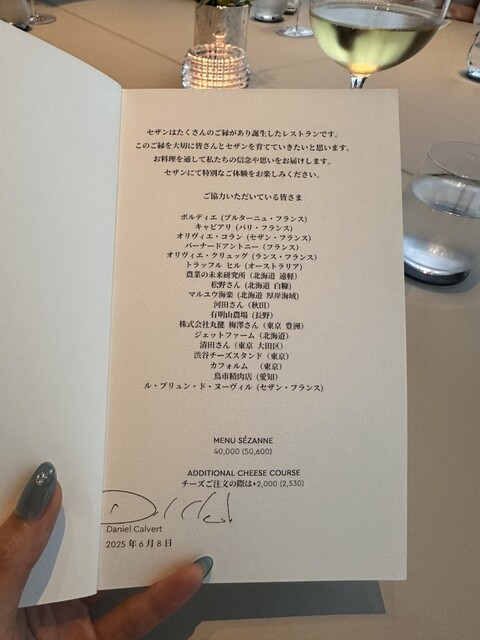 セザンはたくさんのご縁があり誕生したレストランです。
このご縁を大切に皆さんとセザンを育てていきたいと思います。
お料理を通して私たちの信念や思いをお届けします。
セザンにて特別なご体験をお楽しみください。
ご協力いただいている皆さま
ボルディエ (ブルターニュ・フランス)
キャビアリ (パリ・フランス)
オリヴィエ・コラン (セザン・フランス)
バーナードアントニー (フランス)
オリヴィエ・クリュッグ (ランス・フランス)
トラッフル ヒル (オーストラリア)
農業の未来研究所 (北海道 遠軽)
松野さん (北海道 白糠)
マルユウ海楽 (北海道 厚岸海域)
河田さん (秋田)
有明山農場 (長野)
株式会社丸健 梅澤さん (東京 豊洲)
ジェットファーム (北海道)
清田さん (東京 大田区)
渋谷チーズスタンド (東京)
カフォルム (東京)
鳥市精肉店 (愛知)
ル・ブリュン・ド・ヌーヴィル (セザン・フランス)
MENU SÉZANNE
40,000 (50,600)
ADDITIONAL CHEESE COURSE
チーズご注文の際は+2,000 (2,530)
Daniel Calvert
2025 年 6 月 8 日